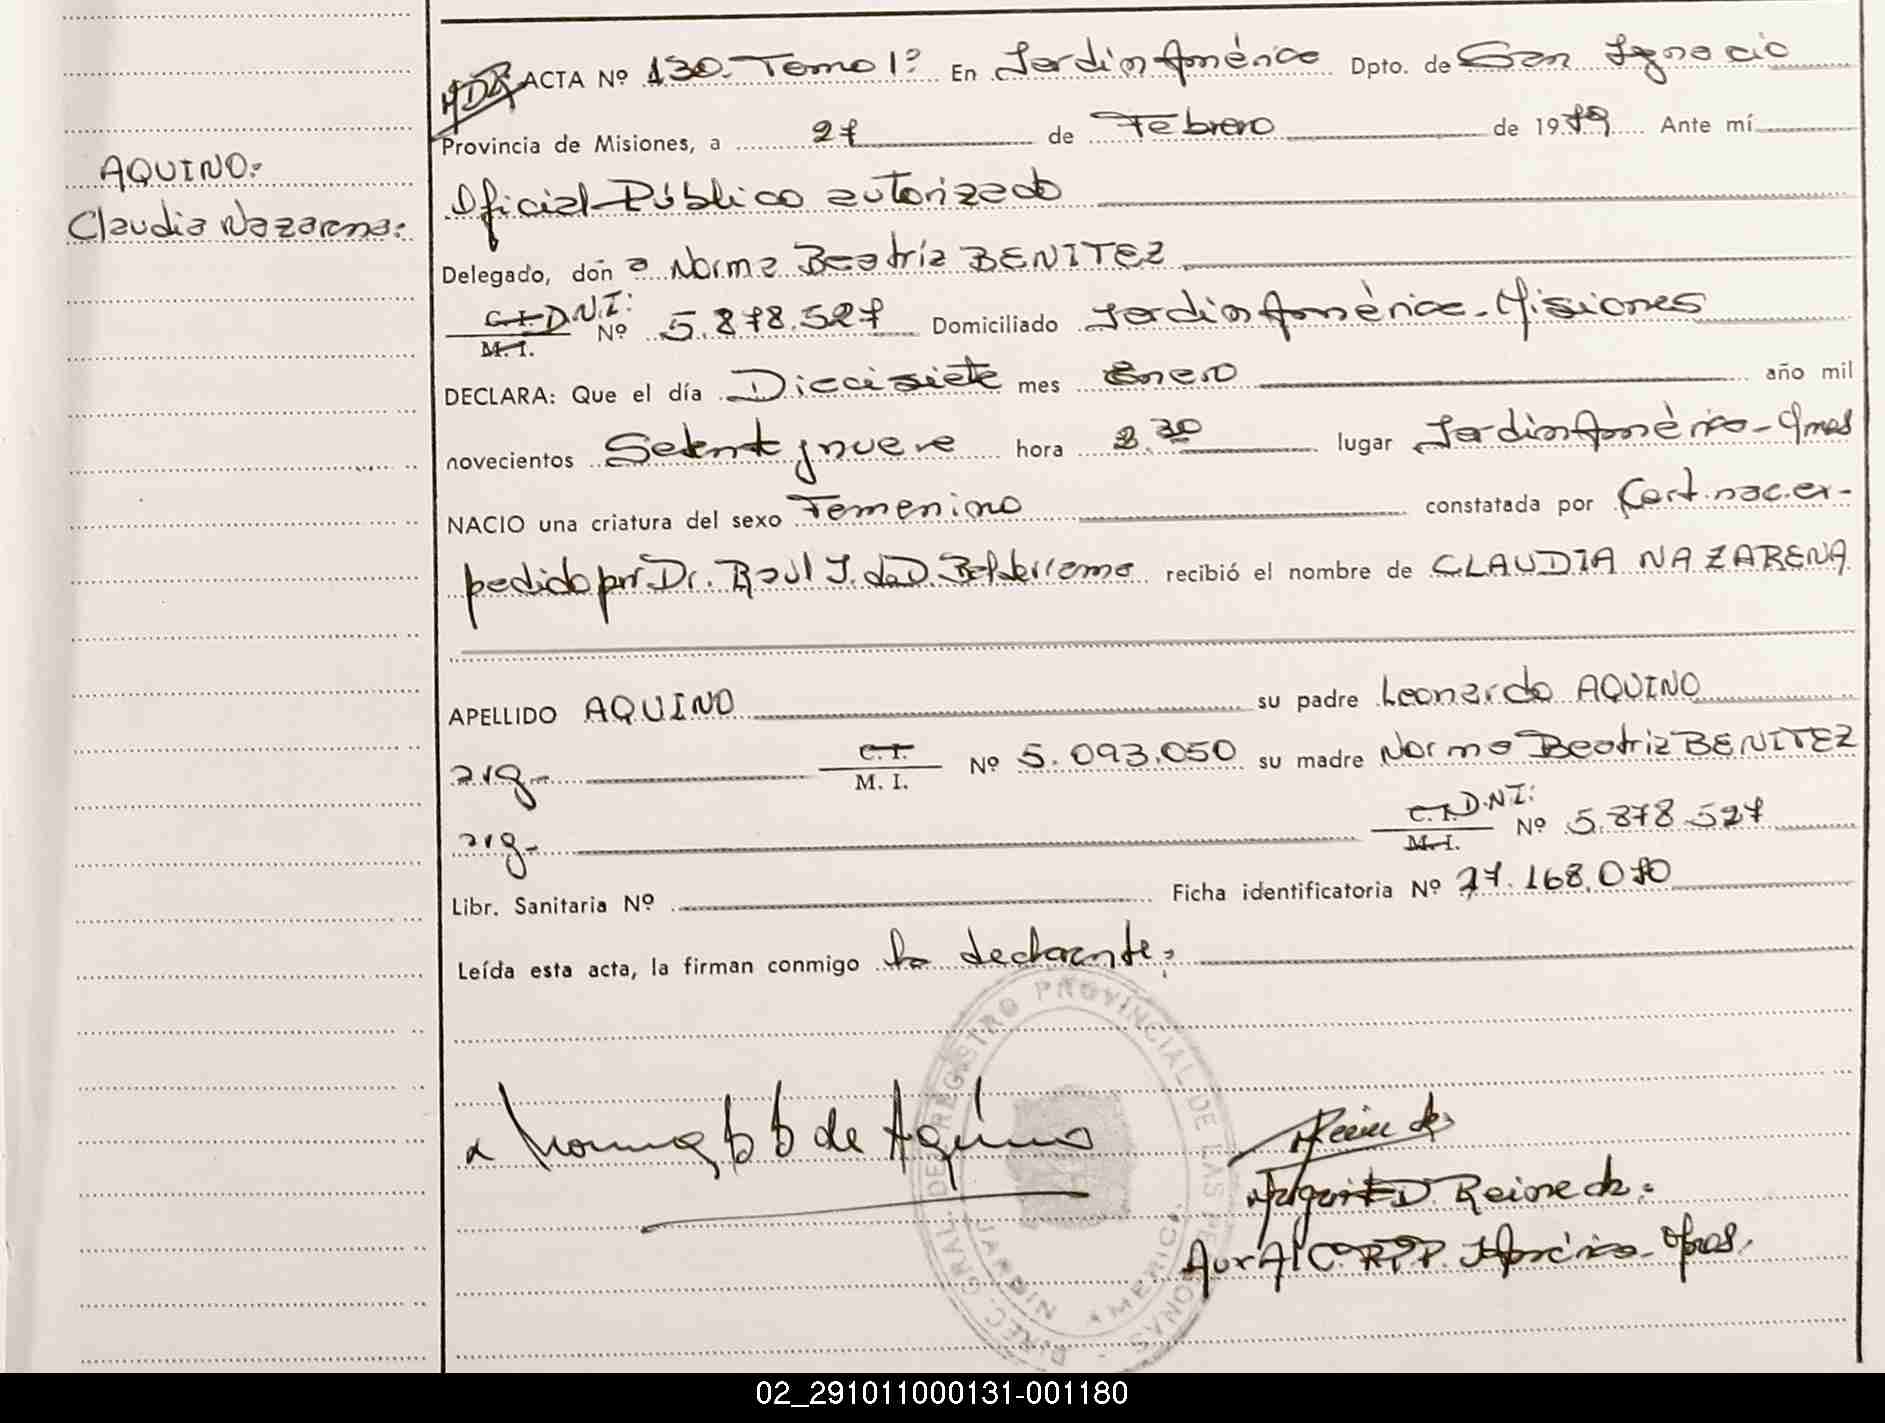 ACTA Nº 130. Tomo 1º En Jardin América Dpto. de San Ignacio
Provincia de Misiones, a 27 de Febrero de 1979 Ante mí
AQUINO:
Oficial Público autorizado
Claudia Nazarena:
Delegado, don a Norma Beatríz BENITEZ
C.I. D.N.I:
M.I. Nº 5.878.527 Domiciliado Jardin América-Misiones
DECLARA: Que el día Diecisiete mes Enero año mil
novecientos Setenta y nueve hora 2.30 lugar Jardin América-Mnes
NACIO una criatura del sexo Femenino constatada por Cert.nac.ex-
pedido por Dr. Raúl J. de D. Balderrama recibió el nombre de CLAUDIA NAZARENA
APELLIDO AQUINO su padre Leonardo AQUINO
arg- C.I. M.I. Nº 5.093.050 su madre Norma Beatriz BENITEZ
arg- C.I. D.N.I: M.I. Nº 5.878.527
Libr. Sanitaria Nº Ficha identificatoria Nº 27.168.070
Leída esta acta, la firman conmigo la declarante:
DIREC. GRAL. DE REGISTRO PROVINCIAL DE LAS PERSONAS
JARDIN AMERICA
Norma B B de Aquino
D. Reineck.
02_291011000131-001180